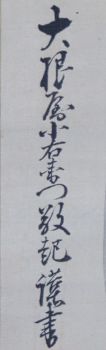 大根屋小右衛門敬起謹書